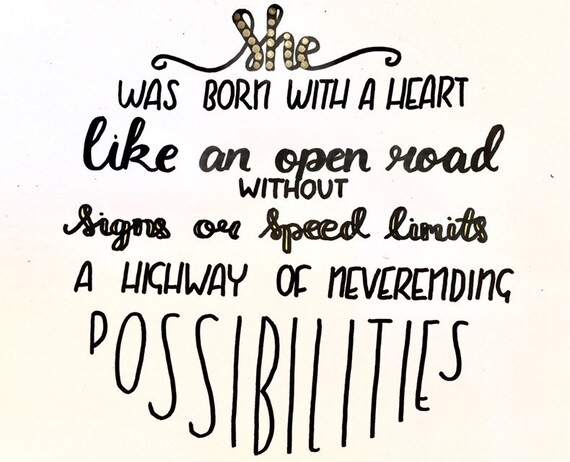 She
WAS BORN WITH A HEART
like an open road
WITHOUT
signs or speed limits
A HIGHWAY OF NEVERENDING
POSSIBILITIES